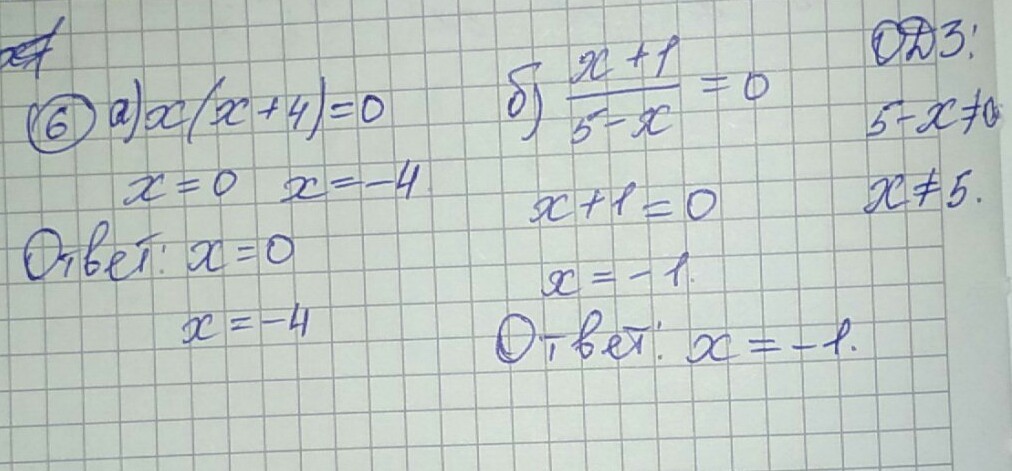 6 а) x(x+4)=0
x=0 x=-4
Ответ: x=0
x=-4
б) (x+1)/(5-x) = 0
x+1=0
x=-1.
Ответ: x=-1.
ОДЗ:
5-x≠0
x≠5.